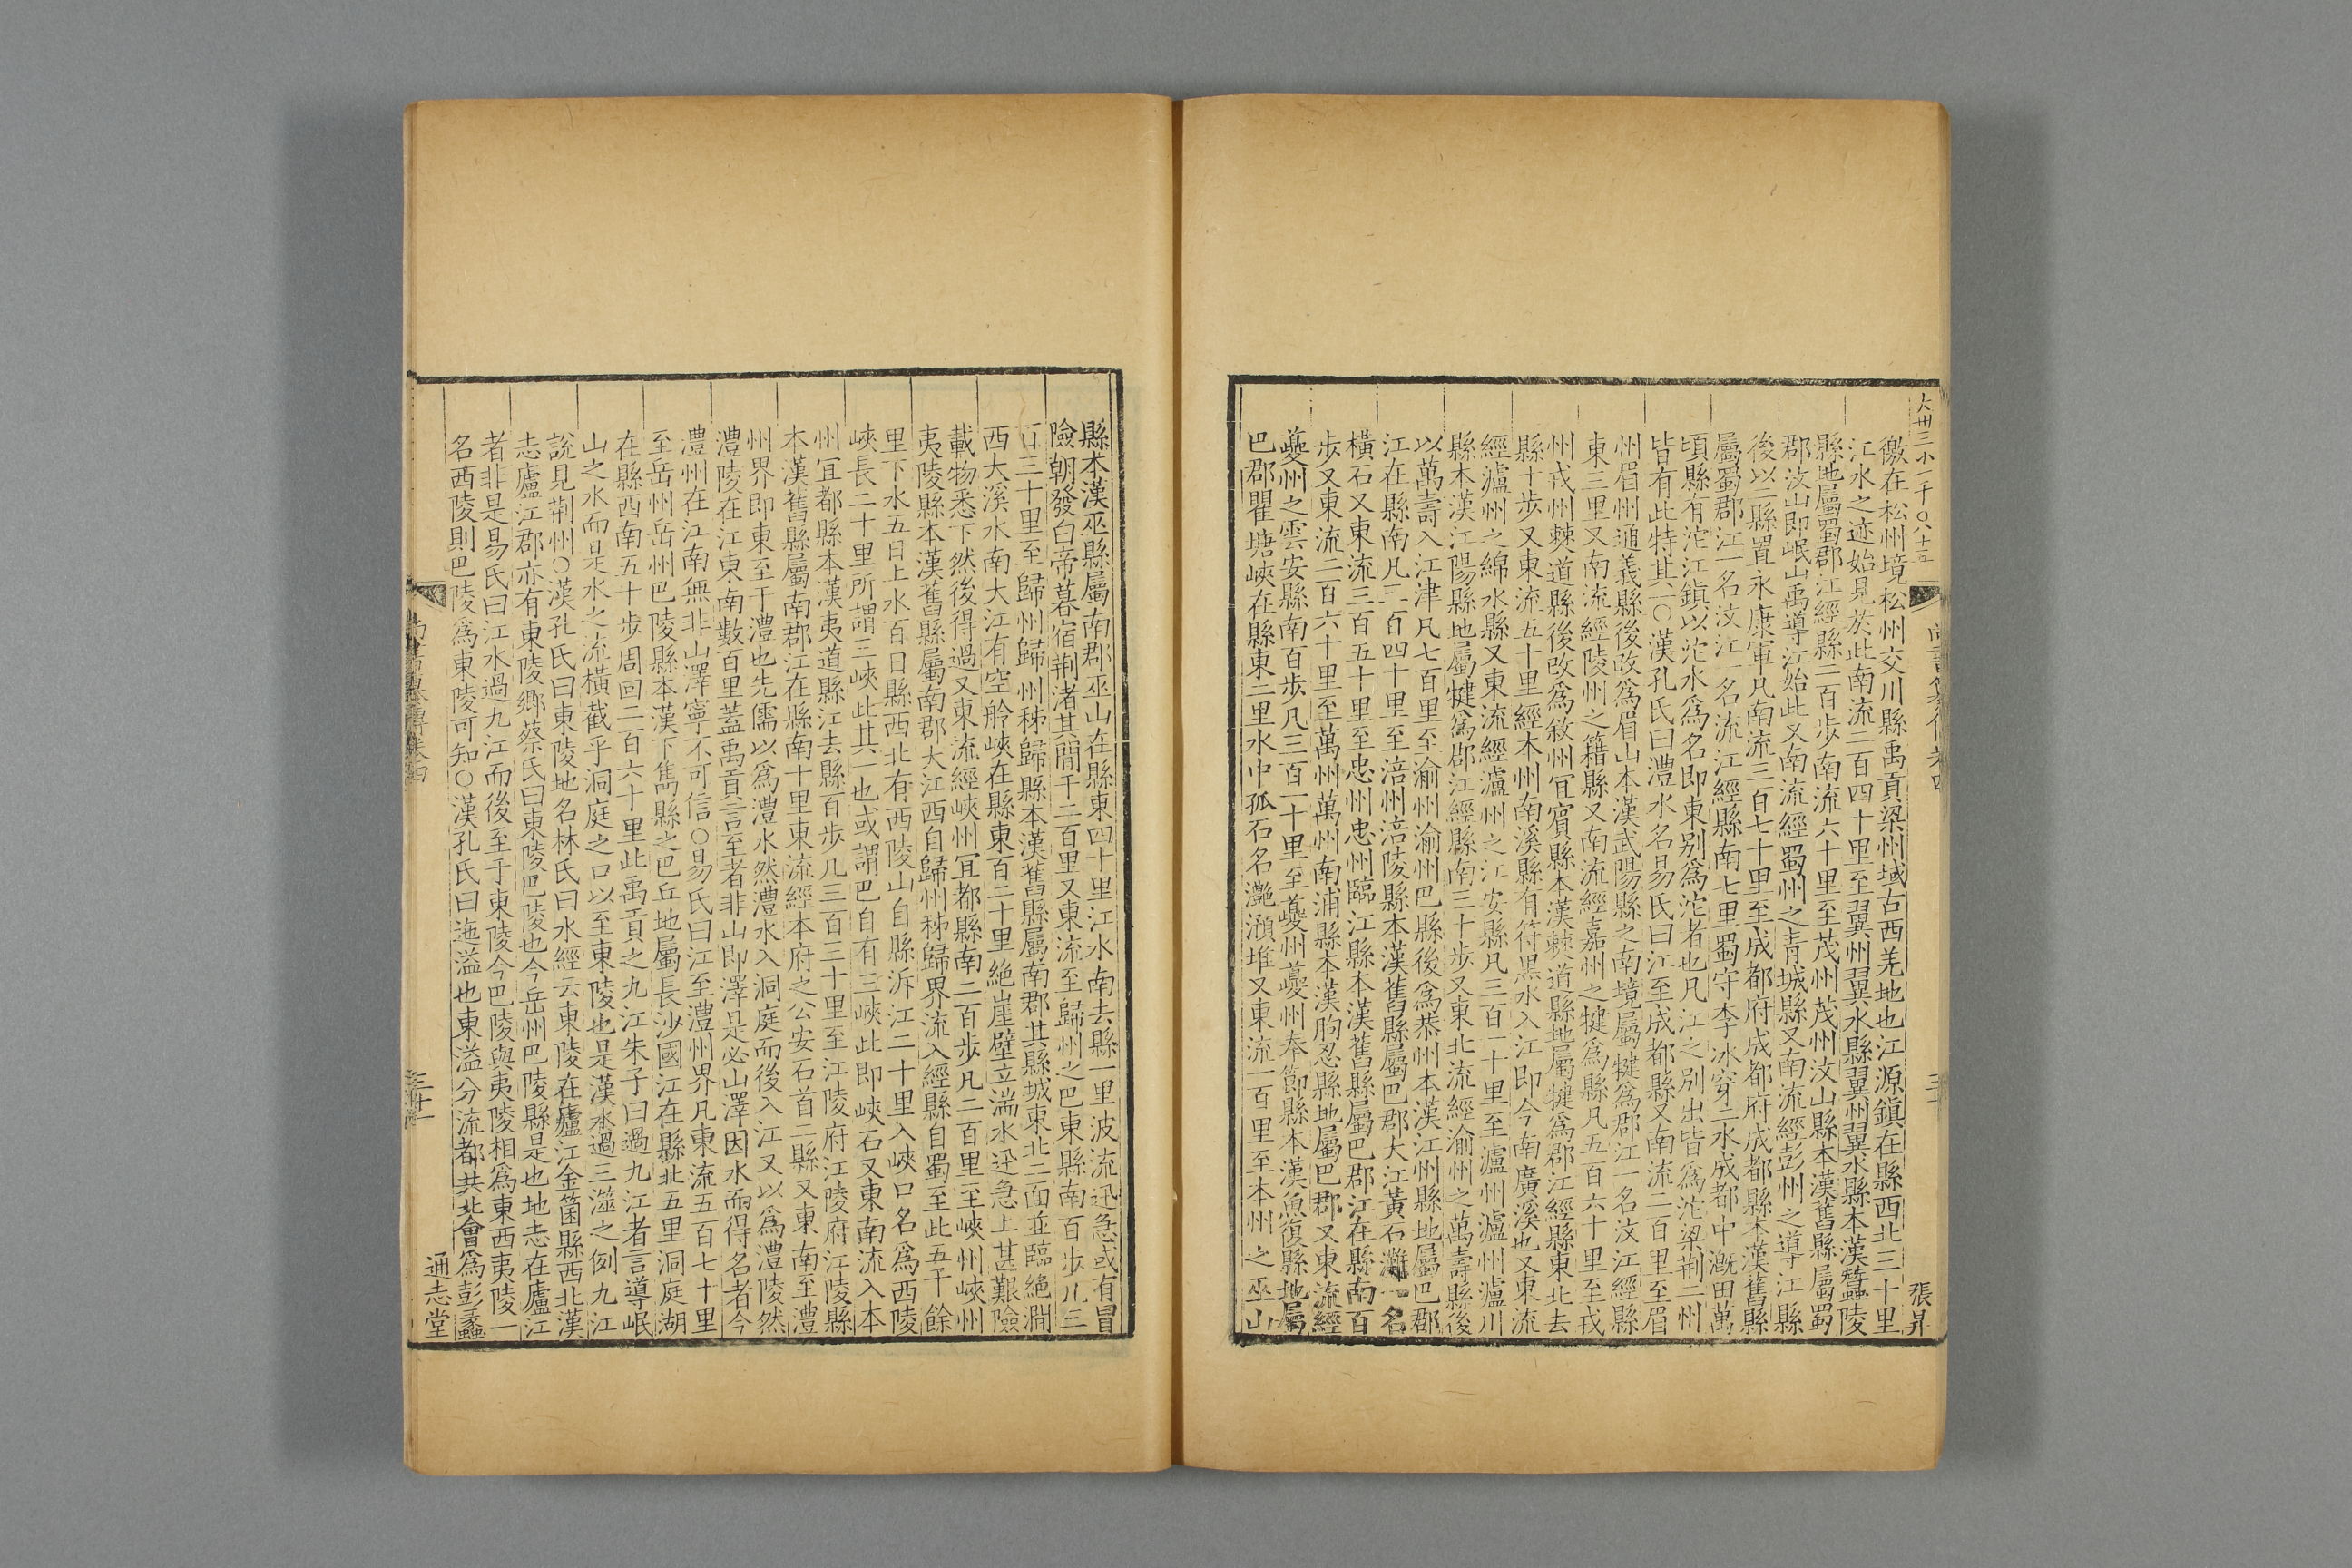 大卌三小一千〇八十五
張昇
徼在松州境松州交川縣禹貢梁州域古西羌地也江源鎮在縣西北三十里
江水之迹始見於此南流二百四十里至翼州翼水縣翼州翼水縣本漢蠶陵
縣地屬蜀郡江經縣二百步南流六十里至茂州茂州汶山縣本漢舊縣屬蜀
郡汶山即岷山禹導江始此又南流經蜀州之青城縣又南流經彭州之導江縣
後以二縣置永康軍凡南流三百七十里至成都府成都府成都縣本漢舊縣
屬蜀郡江一名汶江一名流江經縣南七里蜀守李冰穿二水成都中漑田萬
頃縣有沱江鎮以沱水爲名即東别爲沱者也凡江之别出皆爲沱梁荆二州
皆有此特其一〇漢孔氏曰澧水名易氏曰江至成都縣又南流二百里至眉
州眉州通義縣後改爲眉山本漢武陽縣之南境屬犍爲郡江一名汶江經縣
東三里又南流經陵州之籍縣又南流經嘉州之犍爲縣凡五百六十里至戎
州戎州僰道縣後改爲敘州宜賓縣本漢僰道縣地屬犍爲郡江經縣東北去
縣十步又東流五十里經本州南溪縣有符黑水入江即今南廣溪也又東流
經瀘州之綿水縣又東流經瀘州之江安縣凡三百一十里至瀘州瀘州瀘川
縣本漢江陽縣地屬犍爲郡江經縣南三十步又東北流經渝州之萬壽縣後
以萬壽入江津凡七百里至渝州渝州巴縣後爲恭州本漢江州縣地屬巴郡
江在縣南凡二百四十里至涪州涪陵縣本漢舊縣屬巴郡大江黃石灘一名
橫石又東流三百五十里至忠州忠州臨江縣本漢舊縣屬巴郡江在縣南百
步又東流二百六十里至萬州萬州南浦縣本漢朐忍縣地屬巴郡又東流經
夔州之雲安縣南百步凡三百一十里至夔州夔州奉節縣本漢魚復縣地屬
巴郡瞿塘峽在縣東二里水中孤石名灧澦堆又東流一百里至本州之巫山
縣本漢巫縣屬南郡巫山在縣東四十里江水南去縣一里波流迅急或有冒
險朝發白帝暮宿荆渚其間千二百里又東流至歸州之巴東縣南百步凡三
百三十里至歸州歸州秭歸縣本漢舊縣屬南郡其縣城東北二面並臨絶澗
西大溪水南大江有空舲峽在縣東百二十里絶崖壁立湍水迅急上甚艱險
載物悉下然後得過又東流經峽州宜都縣南二百步凡二百里至峽州峽州
夷陵縣本漢舊縣屬南郡大江西自歸州秭歸界流入經縣自蜀至此五千餘
里下水五日上水百日縣西北有西陵山自縣泝江二十里入峽口名爲西陵
峽長二十里所謂三峽此其一也或謂巴自有三峽此即峽石又東南流入本
州宜都縣本漢夷道縣江去縣百步凡三百三十里至江陵府江陵府江陵縣
本漢舊縣屬南郡江在縣南十里東流經本府之公安石首二縣又東南至澧
州界即東至于澧也先儒以爲澧水然澧水入洞庭而後入江又以爲澧陵然
澧陵在江東南數百里蓋禹貢言至者非山即澤是必山澤因水而得名者今
澧州在江南無非山澤寧不可信〇易氏曰江至澧州界凡東流五百七十里
至岳州岳州巴陵縣本漢下雋縣之巴丘地屬長沙國江在縣北五里洞庭湖
在縣西南五十步周回二百六十里此禹貢之九江朱子曰過九江者言導岷
山之水而是水之流橫截乎洞庭之口以至東陵也是漢水過三澨之例九江
說見荆州〇漢孔氏曰東陵地名林氏曰水經云東陵在廬江金箘縣西北漢
志廬江郡亦有東陵鄉蔡氏曰東陵巴陵也今岳州巴陵縣是也地志在廬江
者非是易氏曰江水過九江而後至于東陵今巴陵與夷陵相爲東西夷陵一
名西陵則巴陵爲東陵可知〇漢孔氏曰迤溢也東溢分流都共北會爲彭蠡
通志堂